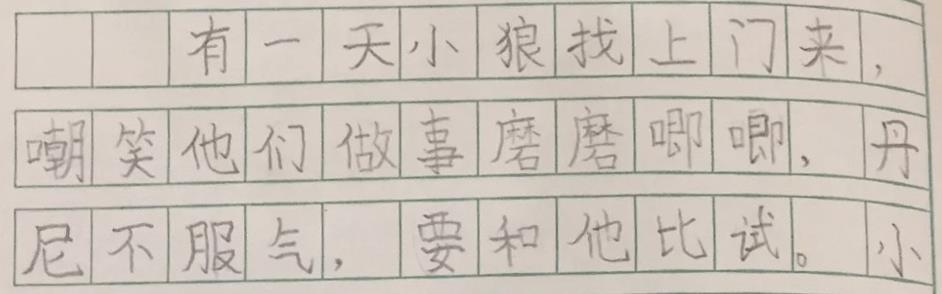 有一天小狼找上门来,
嘲笑他们做事磨磨唧唧,丹
尼不服气,要和他比试。小